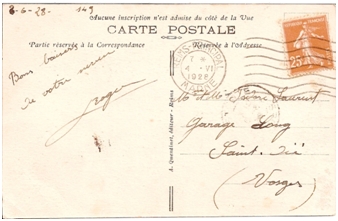 3-6-28- 149
Aucune inscription n'est admise du côté de la Vue
CARTE POSTALE
Partie réservée à la Correspondance
Réservée à l'Adresse
Bons baisers
de votre
Roger
7 *
4 - VI
1928
MARNE
25
A. Quentinet, éditeur - Reims
Garage Long
Saint-Dié
(Vosges)